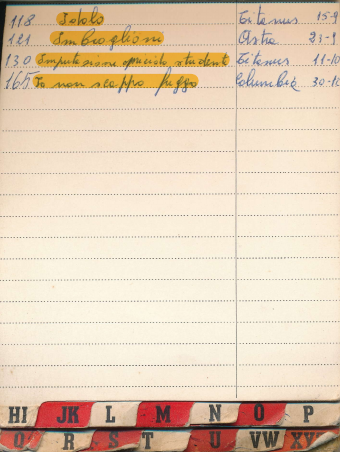 118 Idolo Titanus 15-9
121 Imbroglioni Astra 23-9
130 Imputazione omicidio studente Titanus 11-10
165 Io non scappo fuggo Columbia 30-10
HI JK L M N O P
Q R S T U VW XY